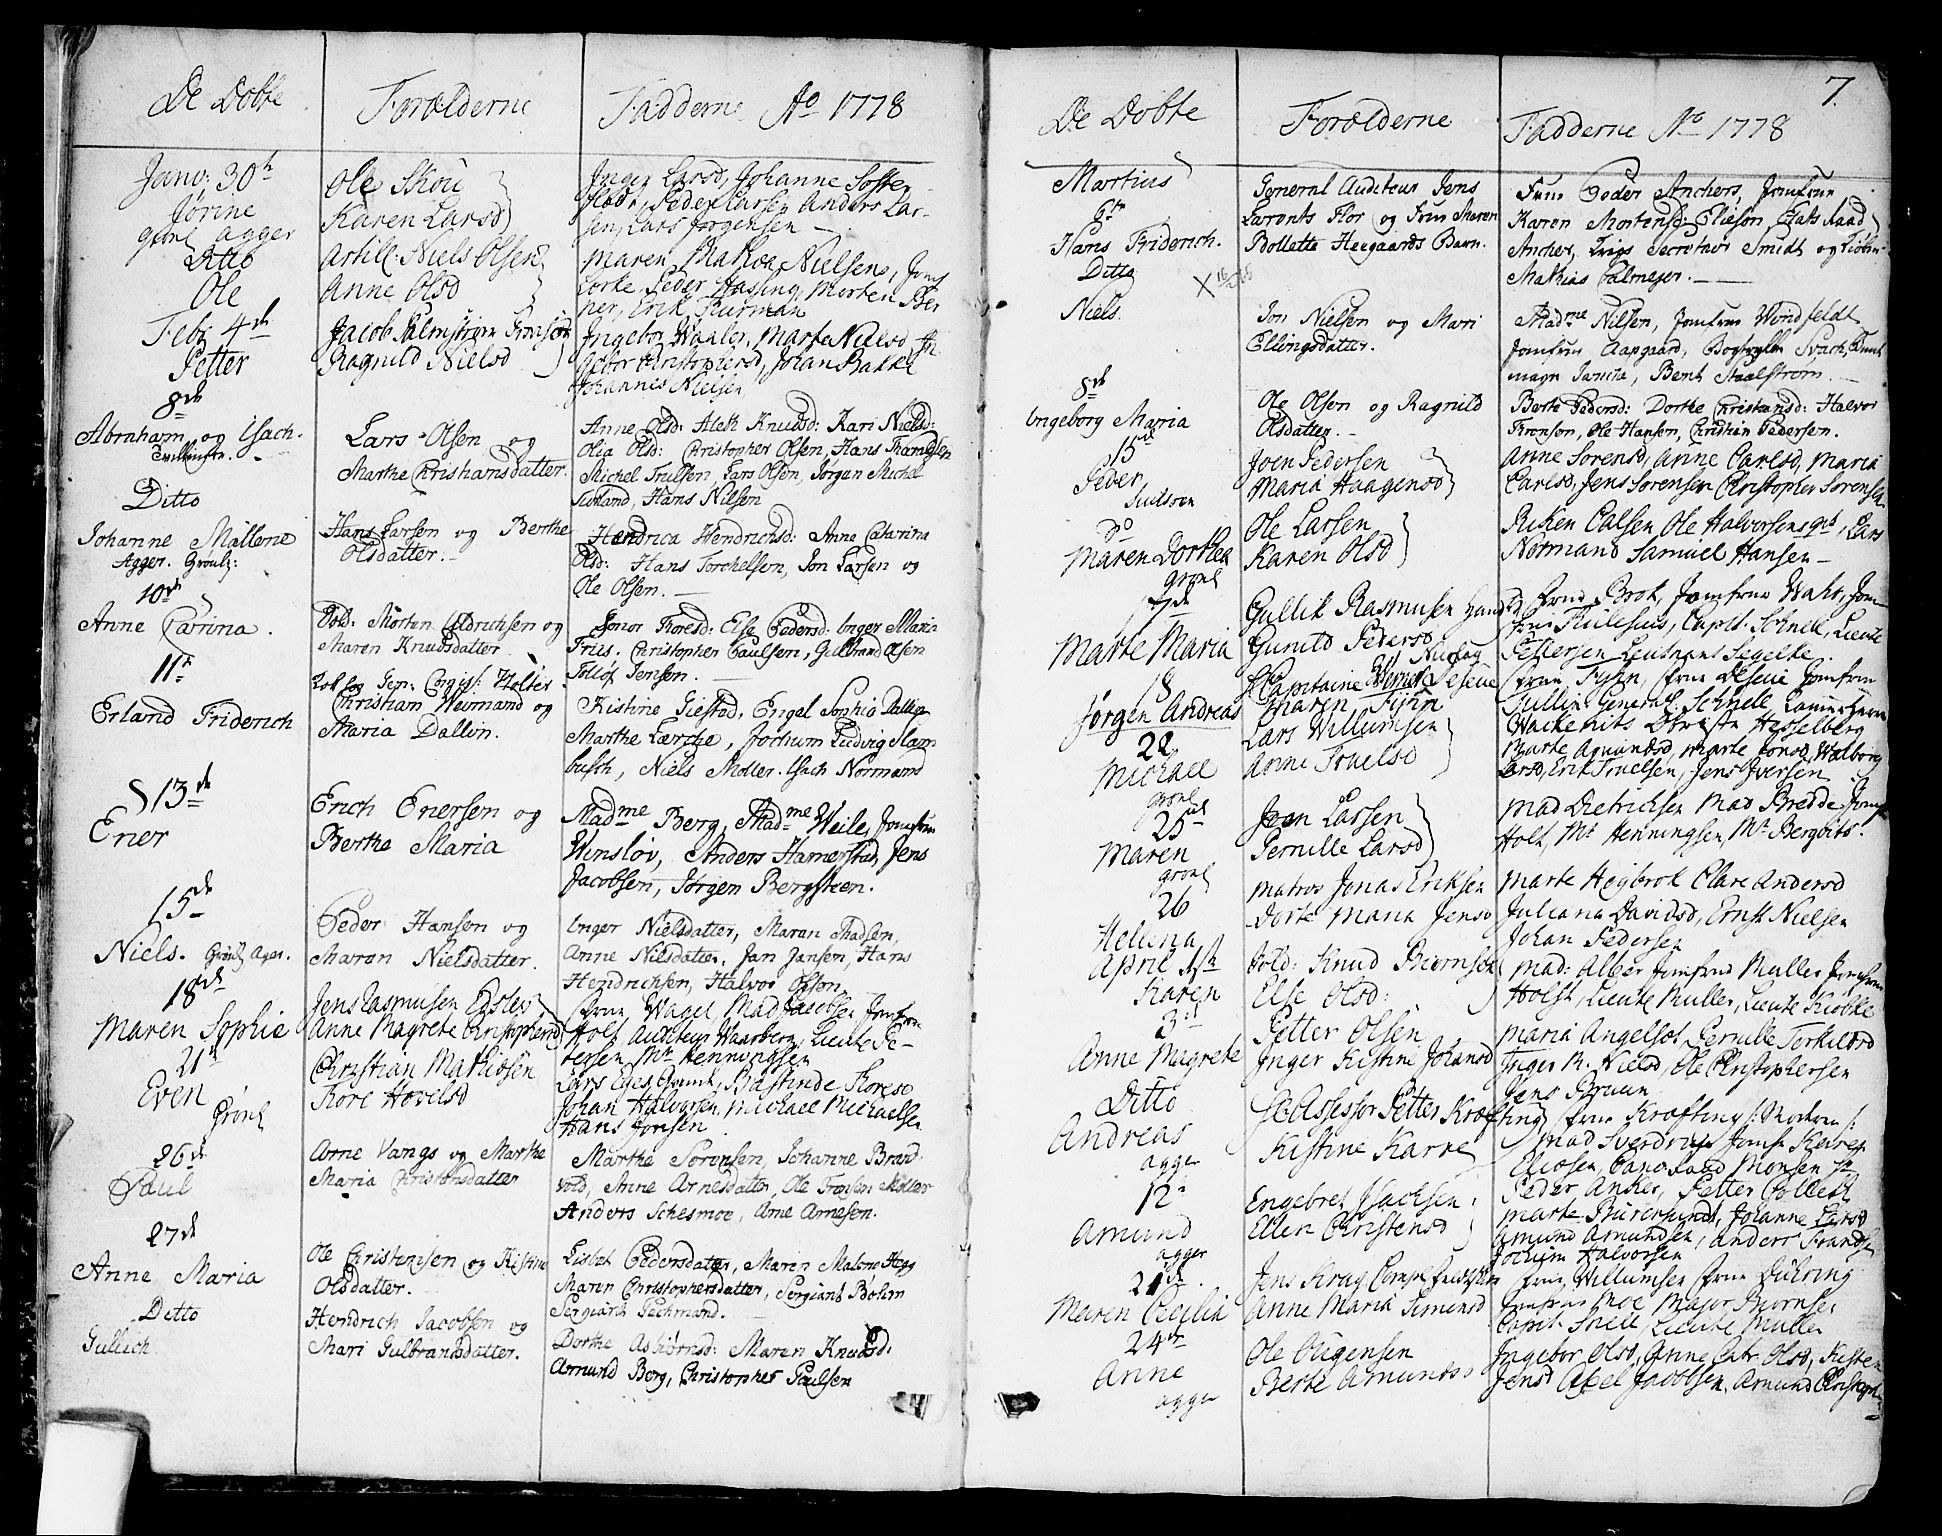 De Dobte
Forælderne
Fadderne Ao 1778
Janv: 30th
Jørine
grønl agger
Ole Skou
Karen Larsd
Inger Larsd, Johanne
Peder Larsen Anders Lar-
sen, Lars Jørgensen —
Ditto
Ole
Artill: Niels Olsen
Anne Olsd
Maren Nielsens, Jens
Peder Hassing, Morten
ner, Erik Furman
Feb: 4de
Petter
Jacob Palmstrøm
Ragnild Nielsd
Ingebor Waaler, Marte Nielsd In
gebor Christophersd, Johan Bakke
Johannes Nielsen
8de
Abraham og Isach.
Tvillinger. -
Lars Olsen og
Marthe Christiansdatter.
Anne Olsd: Aleth Knudsd: Kari Nielsd:
Olia Olsd: Christopher Olsen, Hans
Michel Truelsen, Lars Olsen, Jørgen Michel
Hans Nilsen
Ditto
Johanne Mallene
Agger. Grønl:
Hans Larsen og Berthe
Olsdatter. -
Hendrica Hendrichsd: Anne Catarina
Olsd: Hans Torchelsen, Jon Larsen og
Ole Olsen. —
10de
Anne Carina.
Vold: Morten Uldrichsen og
Maren Knudsdatter
Gonor Toresd: Else Pedersd: Inger Maria
Fries. Christopher Paulsen, Gulbrand Olsen
Jensen. —
11te
Erland Friderich
Holter
Christian Normand og
Maria Dallin.
Kistine Giestad, Engel Sophie Dallin
Marthe Lærche, Jochum Ludvig
busch, Niels Møller. Isach Normand
13de
Ener
Erich Enersen og
Berthe Maria
Madme Berg, Madme Weile, Jomfrue
Winsløv, Anders Hamerstad, Jens
Jacobsen, Jørgen Bergsteen.
15de
Niels. Grønl: Ager.
Peder Hansen og
Maren Nielsdatter.
Inger Nielsdatter, Maran Madsen,
Anne Nilsdatter, Jan Jansen, Hans
Hendrichsen, Halvor Olsen
18de
Maren Sophie
Jens Rasmusen Edslev
Anne Magrete Christophersd
frue Wagel, Mad Jacobsen Jomfrue
Holt Auditeur Waarberg, Lieute Pe-
tersen, Mr Henningsen
21te
Even
Grønl
Christian Mathiesen
Tore Hovelsd
Lars Eges, Kristinde Toresd
Johan Halvorsen, Michael Michaelsen
Hans Jonsen
26de
Paul
Arne Vangs og Marthe
Maria Christensdatter
Marthe Sørensen, Johanne Brand
vold, Anne Arnesdatter, Ole Tronsen Møller
Anders Schesmoe, Arne Arnesen.
27de
Anne Maria
Ole Christensen og Kistine
Olsdatter.
Lisbet Pedersdatter, Maren Malene Hegg
Maren Christophersdatter, Sergiant Bøhm
Sergiant Techmand. —
Ditto
Gullich
Hendrich Jacobsen og
Mari Gulbransdatter.
Dorthe Asbiørnsd: Maren Knudsd:
Amund Berg, Christopher Paulsen
7.
De Dobte
Forælderne
Fadderne Ao 1778
Martius
6te
Hans Friderich.
General Auditeur Jens
Laronts Flor og Frue Maren
Bollette Heegaards Barn.
Frue Peder Anchers, Jomfrue
Karen Mortensd: Eliesen Raad
Ancher, Krigs Secreteur Smidt og
Mathias Palmejer. —
Ditto
Niels.
Jon Nielsen og Mari
Ellingsdatter.
Madme Nilsen, Jomfrue Wendfeldt
Jomfrue Aapgaard, Svach,
Bent Staalstrøm. —
8de
Ingeborg Maria
Ole Olsen og Ragnild
Olsdatter. -
Berte Pedersd: Dorthe Christiansd: Halvor
Tronsen, Ole Hansen, Christian Pedersen.
15de
Peder
Joen Pedersen
Maria Haagensd
Anne Sørensd, Anne Carlsd, Maria
Carlsd, Jens Sørensen Christopher Sørensen
Do
Maren Dorthea
grønl
Ole Larsen
Karen Olsd
Ole Halvorsens, Lars
Normand Samuel Hansen —
17de
Marte Maria
Gullik Rasmusen
Gunild Pedersd
Frue Brok, Jomfrue Wahl, Jom-
frue Capit: Schnell, Lieute
Pettersen Leutnant Segelke.
18
Jørgen Andreas
Capitaine Werner Nicolay Deseue
Maren Fyhn
frue Fyhn, frue Deseue Jomfrue
Tullin General: Schnell, Kammerherre
Wackenits Obriste Hesselberg
22
Michael
grønl
Lars Willumsen
Anne Truelsd
Marte Amundsd, Marte Jonsd, Walborg
Larsd, Erik Truelsen, Jens Iversen
25de
Maren
grønl
Joen Larsen
Pernille Larsd
Mad Dietrichsen Mad Bredde Jomf
Holt, Mr Henningsen, Mr Bergvits.
26
Helena
Matros Jonas Eriksen
Dorte Maria Jensd
Marte Heybrok Clare Andersd
Juliana Davidsd, Ernst Nielsen
Johan Pedersen
April 1ste
Karen
Vold: Knud Biørnsen
Else Olsd:
Mad: Alber Jomfrue Muller Jomfrue
Holst, Lieute Muller, Lieute Kiøbke
3de
Anne Magrete
Petter Olsen
Inger Kistine Johansd
Maria Angelsøt Pernille Torkildsd
Inger M. Nielsd, Ole Christophersen
Jens Bruun
Ditto
Andreas
agger
Hr Assessor Petter Kræfting
Kistine Karre
frue Kræfting /: Modern :/
Mad Sverdrup Jomfr
Eliesen, Cancel.raad Monsen Hr
Peder Anker, Petter Collett
12te
Amund
agger
Engebret Isachsen
Ellen Christensd
Marte Johanne Larsd
Amund Amundsen, Anders Frandsen
Jochim Halvorsen
21de.
Maren Cecilia
Jens Krag
Anne Maria Simensd
frue Willumsen frue Dühring
Jomfrue Moe Major Biørnsen
Capit: Lieute Muller
24de
Anne
agger
Ole Ougensen
Berte Amundsd
Ingebor Olsd, Anne Catr. Olsd, Kisten
Jensd Axel Jacobsen, Amund Christoph